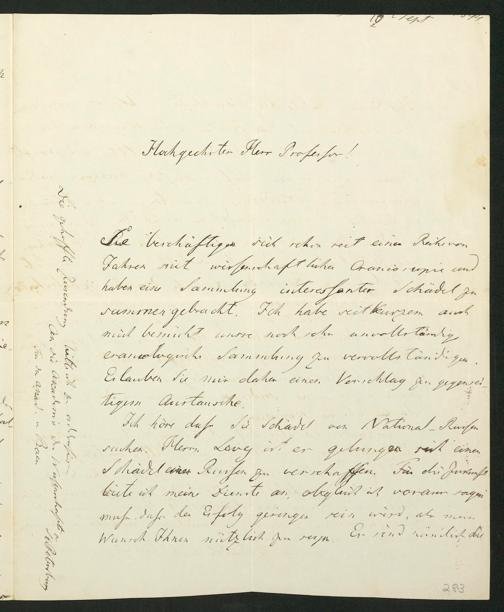 Sept
Hochgeehrter Herr Professor!
Sie beschäftigen sich schon seit einer Reihe von
Jahren mit wissenschaftlicher Cranioscopie und
haben eine Sammlung interessanter Schädel zu
sammengebracht. Ich habe seit Kurzem auch
mich bemüht unsre noch sehr unvollständige
craniologische Sammlung zu vervollständigen.
Erlauben Sie mir daher einen Vorschlag zu gegensei-
tigem Austausche.
Ich höre daß Sie Schädel von National-Russen
suchen. Herrn Levy ist es gelungen mit einen
Schädel eines Russen zu verschaffen. Für die Zukunft
biete ich meine Dienste an, obgleich ich voraus sagen
muß daß der Erfolg geringer sein wird, als mein
Wunsch Ihnen nützlich zu seyn. Es sind nämlich die
283
Die gehoffte Zusendung bitte ich zu
An die Akademie der Wissenschaften
für den Akad. v. Baer
St. Petersburg